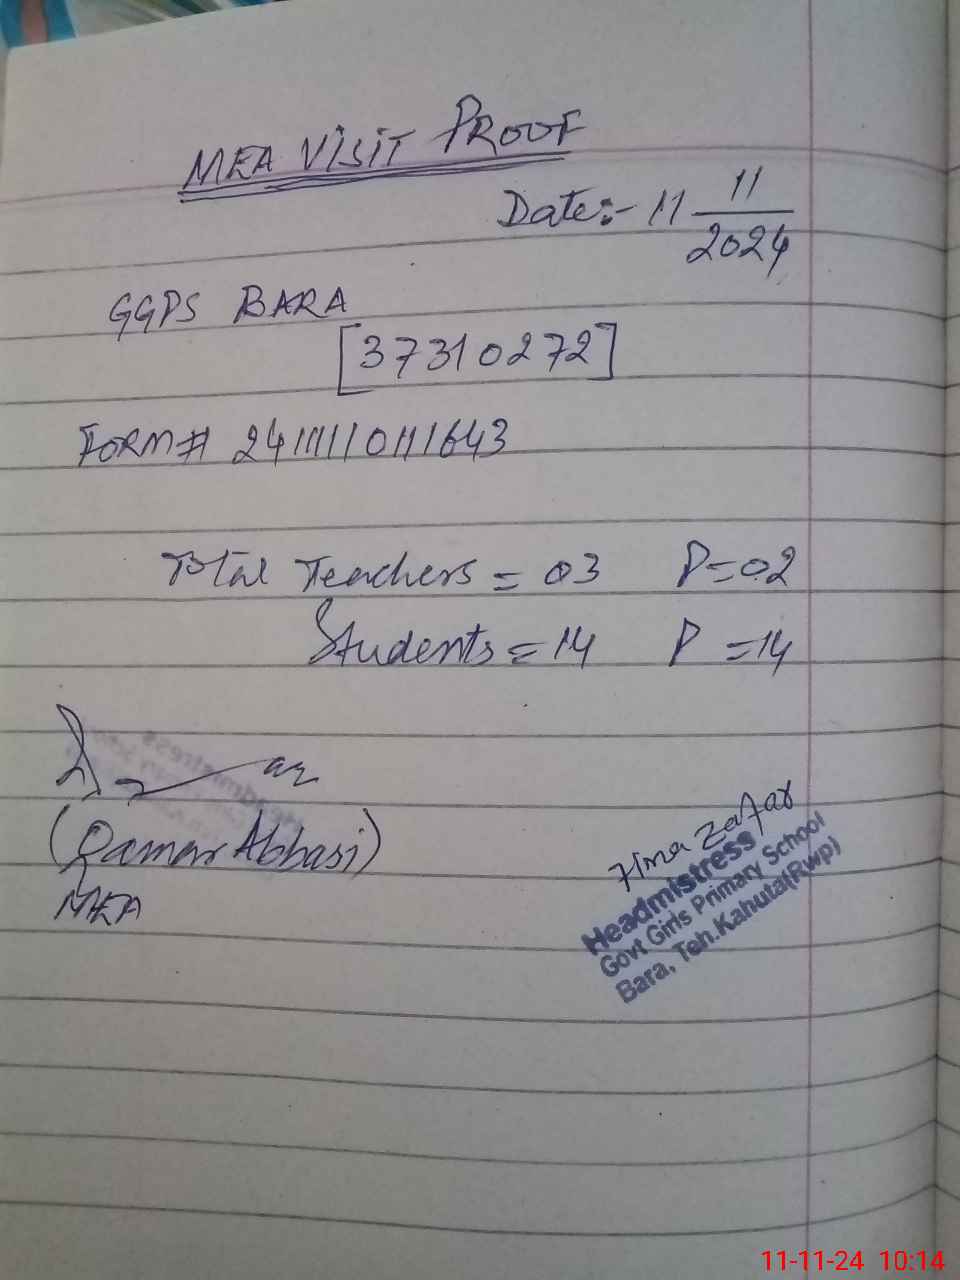 MEA VISIT PROOF
Date:- 11 11/2024
GGPS BARA
[37310272]
FORM# 24111110111643
Total Teachers = 03 P=02
Students = 14 P =14
(Qamar Abbasi)
MEA
Hina Zafar
Headmistress
Govt Girls Primary School
Bara, Teh.Kahuta(Rwp)
11-11-24 10:14